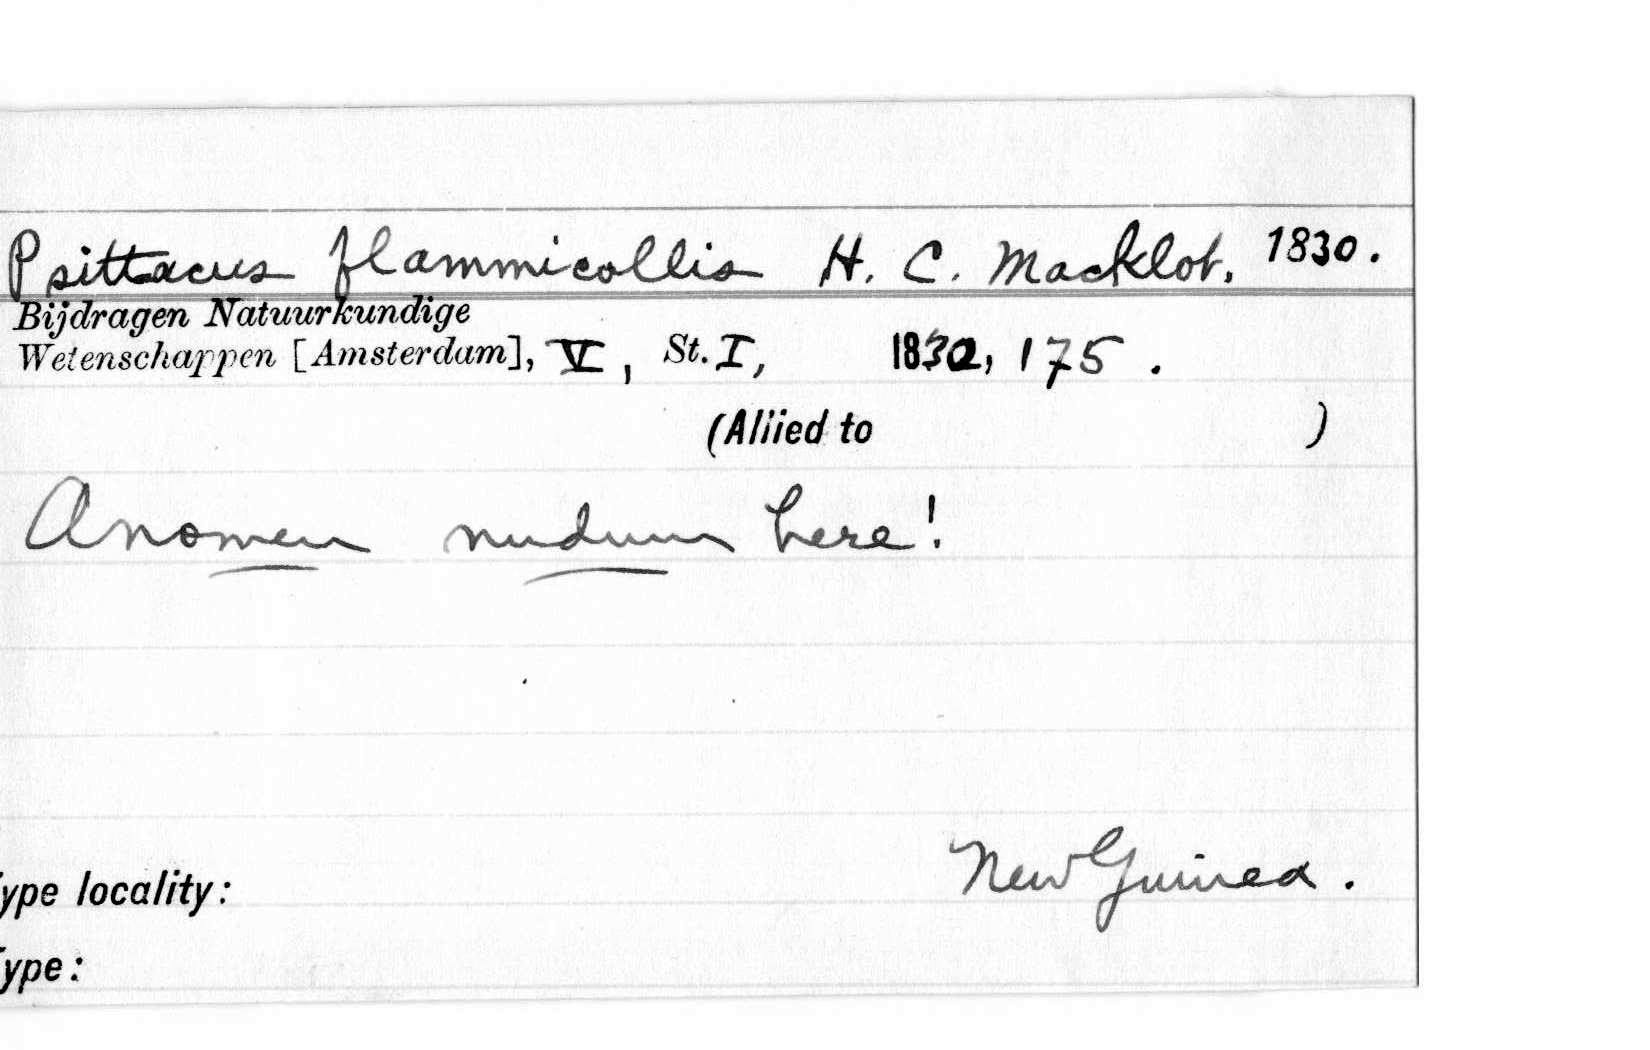 Psittacus flammicollis H. C. Macklot, 1830.
Bijdragen Natuurkundige
Wetenschappen [Amsterdam], V, St. I, 1830, 175.
(Allied to )
A nomen nudum here!
New Guinea.
ype locality:
ype: